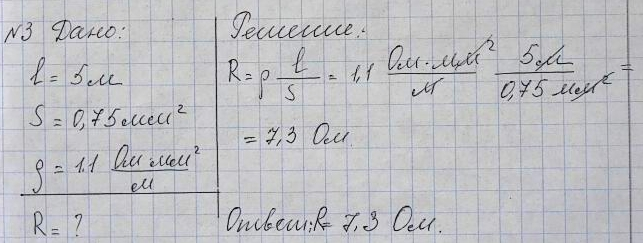 №3 Дано:
l = 5 м
S = 0,75 мм²
ρ = 1.1 Ом мм²/м
R = ?
Решение:
R = ρ l/S = 1,1 Ом·мм²/м 5 м/0,75 мм² =
= 7,3 Ом.
Ответ: R = 7,3 Ом.